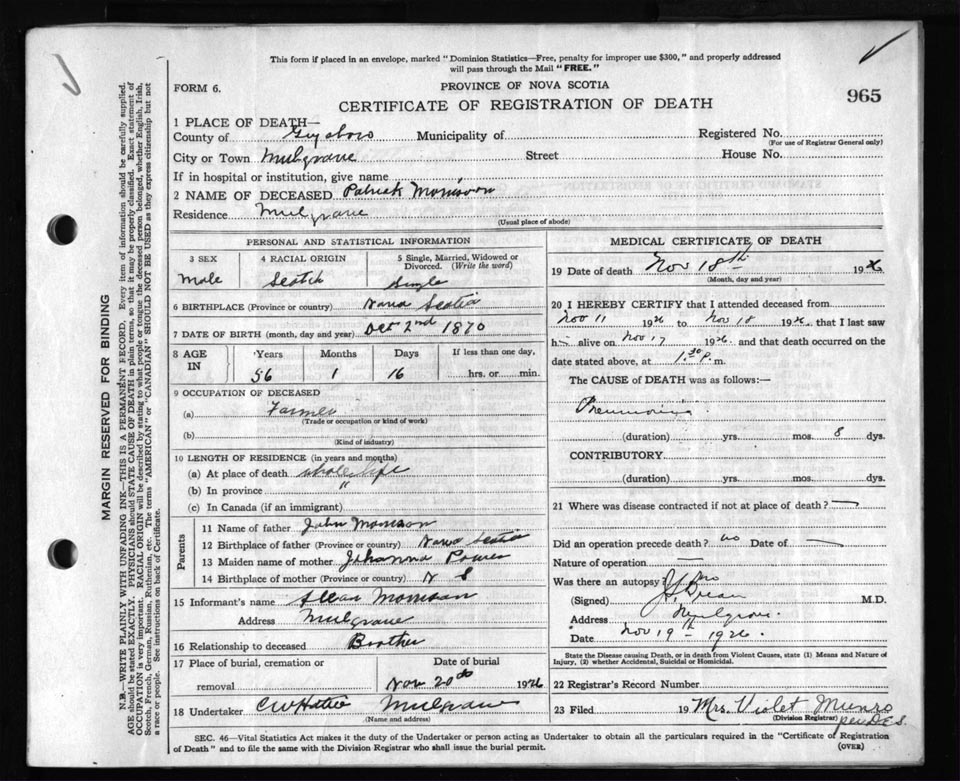 This form if placed in an envelope, marked "Dominion Statistics—Free, penalty for improper use $300," and properly addressed
will pass through the Mail "FREE."
FORM 6.
PROVINCE OF NOVA SCOTIA
CERTIFICATE OF REGISTRATION OF DEATH
965
1 PLACE OF DEATH—
County of Guysboro Municipality of Registered No.
(For use of Registrar General only)
City or Town Mulgrave Street House No.
If in hospital or institution, give name
2 NAME OF DECEASED Patrick Morrison
Residence Mulgrave
(Usual place of abode)
PERSONAL AND STATISTICAL INFORMATION
3 SEX 4 RACIAL ORIGIN 5 Single, Married, Widowed or Divorced. (Write the word)
Male Scotch Single
6 BIRTHPLACE (Province or country) Nova Scotia
7 DATE OF BIRTH (month, day and year) Oct 2nd 1870
8 AGE IN Years Months Days If less than one day,
56 1 16 hrs. or min.
9 OCCUPATION OF DECEASED
(a) Farmer
(Trade or occupation or kind of work)
(b)
(Kind of industry)
10 LENGTH OF RESIDENCE (in years and months)
(a) At place of death whole life
(b) In province "
(c) In Canada (if an immigrant)
Parents
11 Name of father John Morrison
12 Birthplace of father (Province or country) Nova Scotia
13 Maiden name of mother Johanna Power
14 Birthplace of mother (Province or country) N S
15 Informant's name Allan Morrison
Address Mulgrave
16 Relationship to deceased Brother
17 Place of burial, cremation or removal Date of burial
Nov 20th 1926
18 Undertaker Mulgrave
(Name and address)
MEDICAL CERTIFICATE OF DEATH
19 Date of death Nov 18th 1926
(Month, day and year)
20 I HEREBY CERTIFY that I attended deceased from
Nov 11 1926 to Nov 18 1926, that I last saw
h alive on Nov 17 1926 and that death occurred on the
date stated above, at 1.30 P. m.
The CAUSE of DEATH was as follows:—
Pneumonia
(duration) yrs. mos. 8 dys.
CONTRIBUTORY
(duration) yrs. mos. dys.
21 Where was disease contracted if not at place of death? —
Did an operation precede death? no Date of —
Nature of operation —
Was there an autopsy? no
(Signed) M.D.
Address Mulgrave
Date Nov 19th 1926.
State the Disease causing Death, or in death from Violent Causes, state (1) Means and Nature of
Injury, (2) whether Accidental, Suicidal or Homicidal.
22 Registrar's Record Number
23 Filed 19 Mrs. Violet Munro
(Division Registrar) per D.E.S.
SEC. 46—Vital Statistics Act makes it the duty of the Undertaker or person acting as Undertaker to obtain all the particulars required in the "Certificate of Registration
of Death" and to file the same with the Division Registrar who shall issue the burial permit.
(OVER)
MARGIN RESERVED FOR BINDING
N.B.—WRITE PLAINLY WITH UNFADING INK—THIS IS A PERMANENT RECORD. Every item of information should be carefully supplied.
AGE should be stated EXACTLY. PHYSICIANS should STATE CAUSE OF DEATH in plain terms, so that it may be properly classified. Exact statement of
OCCUPATION is very important. RACIAL ORIGIN will be described by stating to what people or tongue the deceased person belonged, whether English, Irish,
Scotch, French, German, Russian, Ruthenian, etc. The terms "AMERICAN" or "CANADIAN" SHOULD NOT BE USED as they express citizenship but not
a race or people. See instructions on back of Certificate.